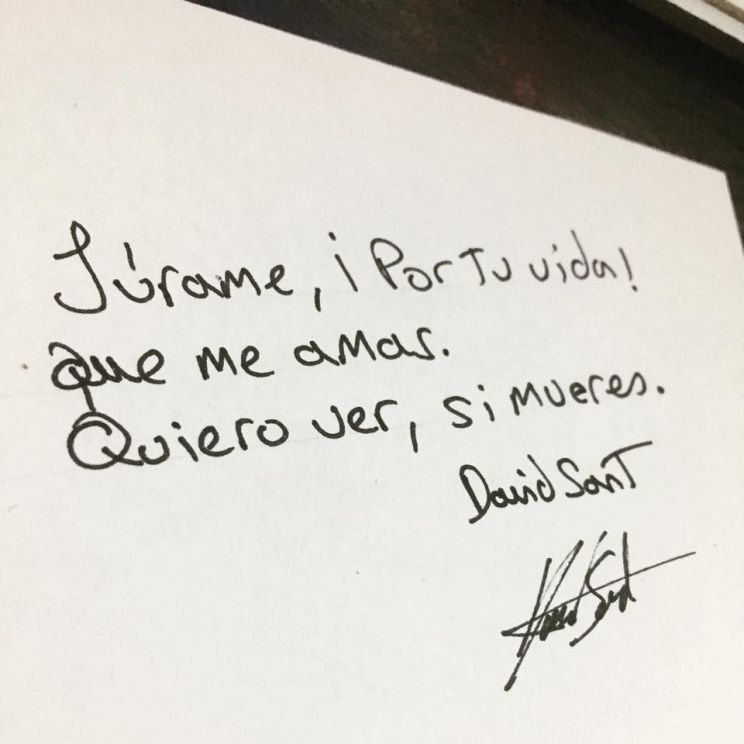 Júrame, ¡Por Tu vida!
que me amas.
Quiero ver, si mueres.
David SanT